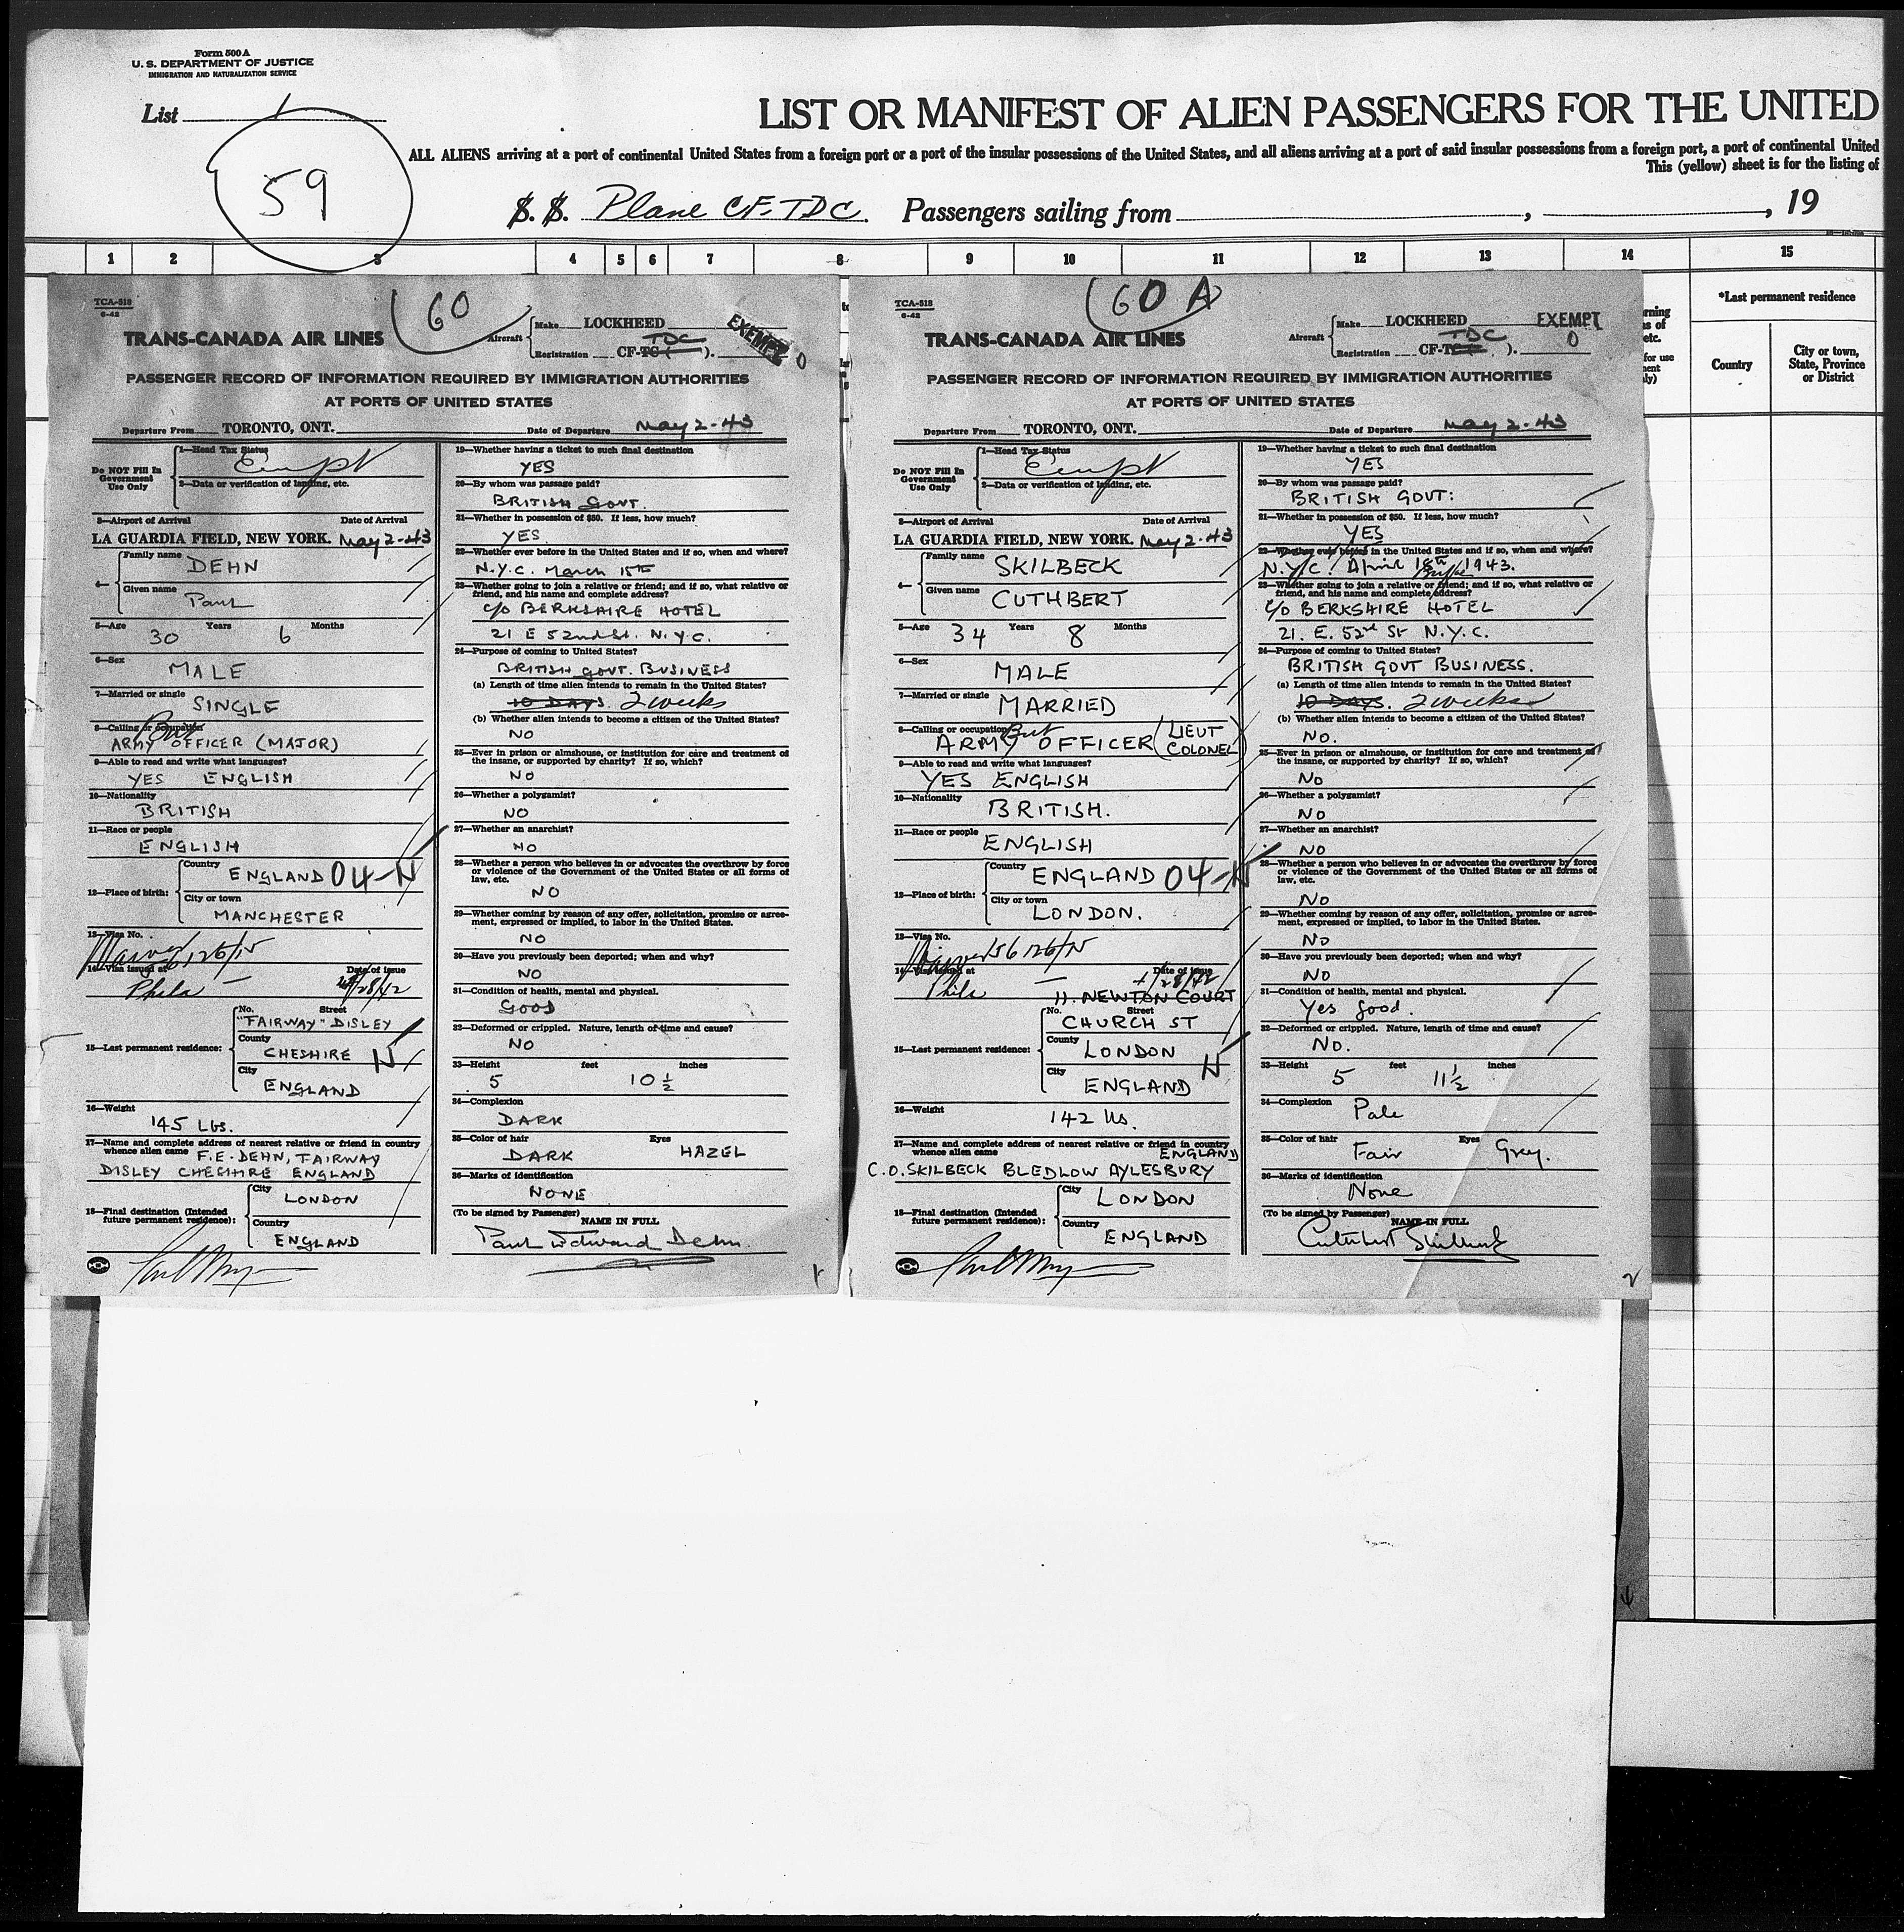 Form 500 A
U. S. DEPARTMENT OF JUSTICE
IMMIGRATION AND NATURALIZATION SERVICE
List 1
59
LIST OR MANIFEST OF ALIEN PASSENGERS FOR THE UNITED
ALL ALIENS arriving at a port of continental United States from a foreign port or a port of the insular possessions of the United States, and all aliens arriving at a port of said insular possessions from a foreign port, a port of continental United
This (yellow) sheet is for the listing of
S. S. Plane CF-TDC Passengers sailing from , , 19
1 2 3 4 5 6 7 8 9 10 11 12 13 14 15
*Last permanent residence
Country
City or town, State, Province or District
TCA-518
6-42
60
TRANS-CANADA AIR LINES
Aircraft
Make LOCKHEED
Registration CF-TC ( TDC ).
EXEMPT
0
PASSENGER RECORD OF INFORMATION REQUIRED BY IMMIGRATION AUTHORITIES
AT PORTS OF UNITED STATES
Departure From TORONTO, ONT. Date of Departure May 2-43
Do NOT Fill In Government Use Only
1—Head Tax Status
Exempt
2—Data or verification of landing, etc.
3—Airport of Arrival Date of Arrival
LA GUARDIA FIELD, NEW YORK. May 2-43
4—
Family name
DEHN
Given name
Paul
5—Age 30 Years 6 Months
6—Sex
MALE
7—Married or single
SINGLE
8—Calling or occupation
ARMY OFFICER (MAJOR)
9—Able to read and write what languages?
YES ENGLISH
10—Nationality
BRITISH
11—Race or people
ENGLISH
12—Place of birth:
Country
ENGLAND 04-N
City or town
MANCHESTER
13—Visa No.
14—Visa issued at Date of issue
Phila
15—Last permanent residence:
No. Street
"FAIRWAY" DISLEY
County
CHESHIRE N
City
ENGLAND
16—Weight
145 Lbs.
17—Name and complete address of nearest relative or friend in country
whence alien came F.E. DEHN, FAIRWAY
DISLEY CHESHIRE ENGLAND
18—Final destination (Intended future permanent residence):
City
LONDON
Country
ENGLAND
19—Whether having a ticket to such final destination
YES
20—By whom was passage paid?
BRITISH GOVT.
21—Whether in possession of $50. If less, how much?
YES.
22—Whether ever before in the United States and if so, when and where?
N.Y.C. March 15TH
23—Whether going to join a relative or friend; and if so, what relative or
friend, and his name and complete address?
c/o BERKSHIRE HOTEL
21 E 52nd St. N.Y.C.
24—Purpose of coming to United States?
BRITISH GOVT. BUSINESS
(a) Length of time alien intends to remain in the United States?
10 DAYS. 2 weeks
(b) Whether alien intends to become a citizen of the United States?
NO
25—Ever in prison or almshouse, or institution for care and treatment of
the insane, or supported by charity? If so, which?
NO
26—Whether a polygamist?
NO
27—Whether an anarchist?
NO
28—Whether a person who believes in or advocates the overthrow by force
or violence of the Government of the United States or all forms of
law, etc.
NO
29—Whether coming by reason of any offer, solicitation, promise or agree-
ment, expressed or implied, to labor in the United States.
NO
30—Have you previously been deported; when and why?
NO
31—Condition of health, mental and physical.
GOOD
32—Deformed or crippled. Nature, length of time and cause?
NO
33—Height feet inches
5 10 1/2
34—Complexion
DARK
35—Color of hair Eyes
DARK HAZEL
36—Marks of identification
NONE
(To be signed by Passenger)
NAME IN FULL
Paul Edward Dehn.
1
TCA-518
6-42
60 A
TRANS-CANADA AIR LINES
Aircraft
Make LOCKHEED
Registration CF-TC TDC ).
EXEMPT
0
PASSENGER RECORD OF INFORMATION REQUIRED BY IMMIGRATION AUTHORITIES
AT PORTS OF UNITED STATES
Departure From TORONTO, ONT. Date of Departure May 2-43
Do NOT Fill In Government Use Only
1—Head Tax Status
Exempt
2—Data or verification of landing, etc.
3—Airport of Arrival Date of Arrival
LA GUARDIA FIELD, NEW YORK. May 2-43
4—
Family name
SKILBECK
Given name
CUTHBERT
5—Age 34 Years 8 Months
6—Sex
MALE
7—Married or single
MARRIED
8—Calling or occupation
ARMY OFFICER (LIEUT COLONEL)
9—Able to read and write what languages?
YES ENGLISH
10—Nationality
BRITISH.
11—Race or people
ENGLISH
12—Place of birth:
Country
ENGLAND 04-N
City or town
LONDON.
13—Visa No.
Waiver 56126/N
14—Visa issued at Date of issue
Phila
11. NEWTON COURT
15—Last permanent residence:
No. Street
CHURCH ST
County
LONDON
N
City
ENGLAND
16—Weight
142 lbs.
17—Name and complete address of nearest relative or friend in country
whence alien came ENGLAND
C.O. SKILBECK BLEDLOW AYLESBURY
18—Final destination (Intended future permanent residence):
City
LONDON
Country
ENGLAND
19—Whether having a ticket to such final destination
YES
20—By whom was passage paid?
BRITISH GOVT:
21—Whether in possession of $50. If less, how much?
YES
22—Whether ever before in the United States and if so, when and where?
N.Y.C. April 18th 1943.
23—Whether going to join a relative or friend; and if so, what relative or
friend, and his name and complete address?
c/o BERKSHIRE HOTEL
21. E. 52nd St N.Y.C.
24—Purpose of coming to United States?
BRITISH GOVT BUSINESS.
(a) Length of time alien intends to remain in the United States?
10 DAYS. 2 weeks
(b) Whether alien intends to become a citizen of the United States?
NO.
25—Ever in prison or almshouse, or institution for care and treatment of
the insane, or supported by charity? If so, which?
No
26—Whether a polygamist?
No
27—Whether an anarchist?
No
28—Whether a person who believes in or advocates the overthrow by force
or violence of the Government of the United States or all forms of
law, etc.
No
29—Whether coming by reason of any offer, solicitation, promise or agree-
ment, expressed or implied, to labor in the United States.
No
30—Have you previously been deported; when and why?
No
31—Condition of health, mental and physical.
Yes good.
32—Deformed or crippled. Nature, length of time and cause?
No.
33—Height feet inches
5 11 1/2
34—Complexion
Pale
35—Color of hair Eyes
Fair Grey.
36—Marks of identification
None
(To be signed by Passenger)
NAME IN FULL
Cuthbert Skilbeck
2